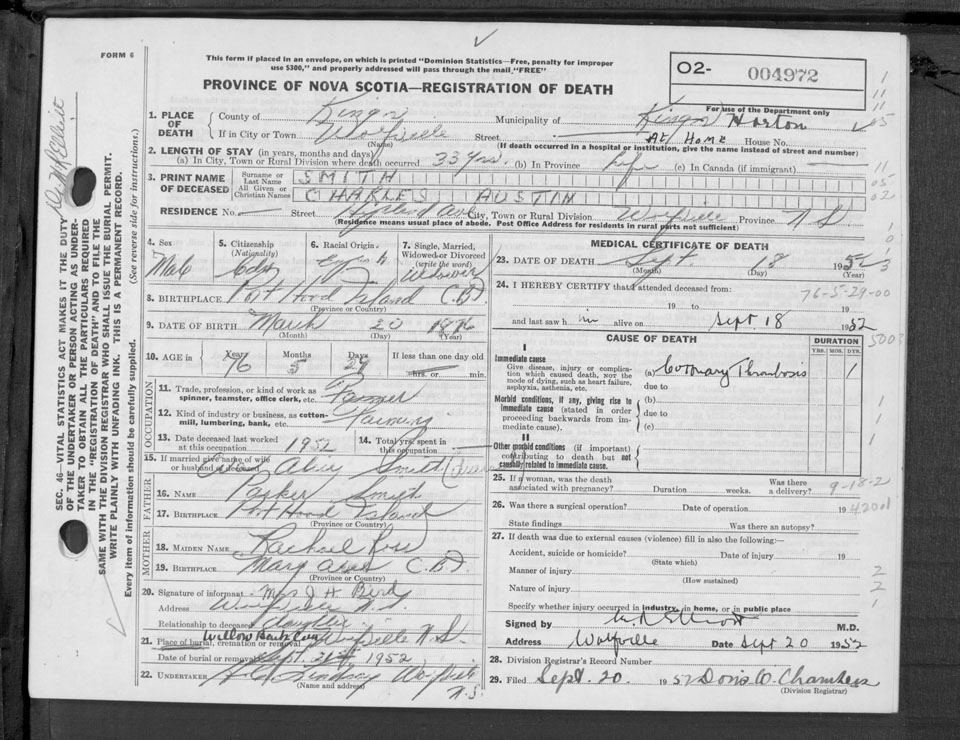 FORM 6
This form if placed in an envelope, on which is printed "Dominion Statistics—Free, penalty for improper
use $300," and properly addressed will pass through the mail "FREE"
PROVINCE OF NOVA SCOTIA—REGISTRATION OF DEATH
O2- 004972
For use of the Department only
1. PLACE OF DEATH County of Kings Municipality of Kings Horton
If in City or Town Wolfville Street At Home House No.
(Name) (If death occurred in a hospital or institution, give the name instead of street and number)
2. LENGTH OF STAY (in years, months and days)
(a) In City, Town or Rural Division where death occurred 33 yrs. (b) In Province life (c) In Canada (if immigrant)
3. PRINT NAME OF DECEASED Surname or Last Name SMITH
All Given or Christian Names CHARLES AUSTIN
RESIDENCE No. Street City, Town or Rural Division Wolfville Province N S
(Residence means usual place of abode. Post Office Address for residents in rural parts not sufficient)
4. Sex Male
5. Citizenship (Nationality) Cdn
6. Racial Origin English
7. Single, Married, Widowed or Divorced (write the word) Widower
8. BIRTHPLACE Port Hood Island C.B.
(Province or Country)
9. DATE OF BIRTH March 20 1876
(Month) (Day) (Year)
10. AGE in Years 76 Months 5 Days 29 If less than one day old hrs. or min.
OCCUPATION
11. Trade, profession, or kind of work as spinner, teamster, office clerk, etc. Farmer
12. Kind of industry or business, as cotton-mill, lumbering, bank, etc. Farming
13. Date deceased last worked at this occupation 1952
14. Total yrs. spent in this occupation
15. If married give name of wife or husband of deceased Alice Smith
FATHER
16. NAME Parker Smith
17. BIRTHPLACE Port Hood Island
(Province or Country)
MOTHER
18. MAIDEN NAME Rachael Rose
19. BIRTHPLACE Margaree C.B.
(Province or Country)
20. Signature of informant Mrs J. H. Bird
Address Wolfville N.S.
Relationship to deceased daughter
21. Place of burial, cremation or removal Willow Bank Cem Wolfville N.S.
Date of burial or removal Sept. 21st 1952
22. UNDERTAKER Lindsay Wolfville N.S.
(Name and address)
MEDICAL CERTIFICATE OF DEATH
23. DATE OF DEATH Sept. 18 1952
(Month) (Day) (Year)
24. I HEREBY CERTIFY that I attended deceased from:
76-5-29-00
19 to 19
and last saw him alive on Sept 18 1952
CAUSE OF DEATH DURATION
YRS. MOS. DYS.
I
Immediate cause
Give disease, injury or complication which caused death, not the mode of dying, such as heart failure, asphyxia, asthenia, etc.
(a) Coronary Thrombosis 1
due to
Morbid conditions, if any, giving rise to immediate cause (stated in order proceeding backwards from immediate cause).
(b)
due to
(c)
II
Other morbid conditions (if important) contributing to death but not causally related to immediate cause.
25. If a woman, was the death associated with pregnancy? Duration weeks. Was there a delivery?
9-18-2
26. Was there a surgical operation? Date of operation 19
4201
State findings Was there an autopsy?
27. If death was due to external causes (violence) fill in also the following:—
Accident, suicide or homicide? Date of injury 19
(State which)
Manner of injury
(How sustained)
Nature of injury
Specify whether injury occurred in industry, in home, or in public place
Signed by M.D.
Address Wolfville Date Sept 20 1952
28. Division Registrar's Record Number
29. Filed Sept. 20. 1952 Doris O. Chambers
(Division Registrar)
SEC. 46—VITAL STATISTICS ACT MAKES IT THE DUTY
OF THE UNDERTAKER OR PERSON ACTING AS UNDER-
TAKER TO OBTAIN ALL THE PARTICULARS REQUIRED
IN THE "REGISTRATION OF DEATH" AND TO FILE THE
SAME WITH THE DIVISION REGISTRAR WHO SHALL ISSUE THE BURIAL PERMIT.
WRITE PLAINLY WITH UNFADING INK. THIS IS A PERMANENT RECORD.
Every item of information should be carefully supplied. (See reverse side for instructions.)